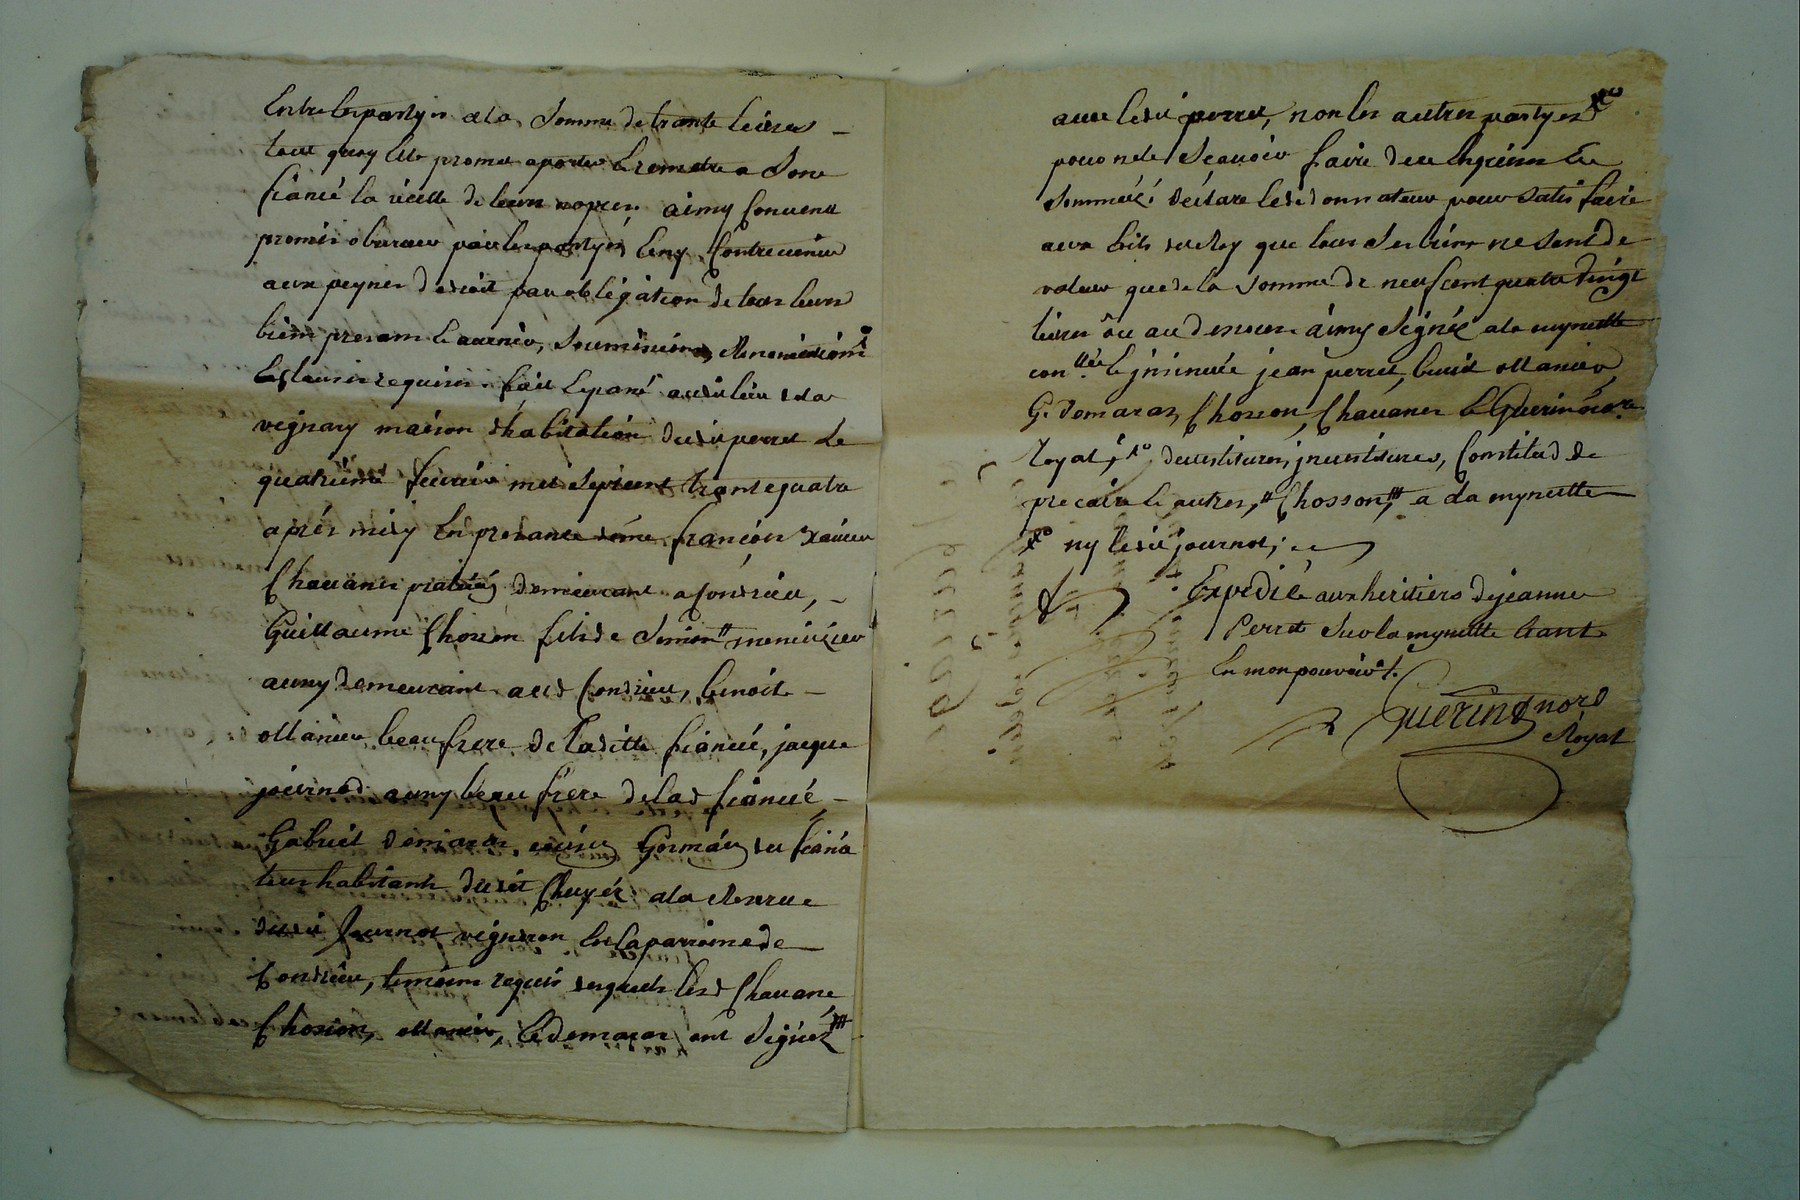 Entre les partyes a la somme de trante livres
tout quoy elle promet aporter & remettre a sond
fiancé la vielle de leurs nopces ainsy convenu
promis observer par les partyes & ny contrevenir
aux peynes de droit par obligation de tous leurs
biens presans & avenir, soumissions, renonciations
& clauses requises fait & passé audit lieu de la
vignary maison d'habitation dudit perret le
quatrieme fevrier mil sept cent trante quatre
aprés midy en presance de me françois Xavier
Chavanes praticien demeurant a Condrieu,
Guillaume Chosson fils de Simon # menuizier
aussy demeurant aud Condrieu, benoit
ollanier beaufrere de laditte fiancée, jacque
journod aussy beau frere de lad fiancée
Gabriel demaras cousin Germain du fiancé
tous habitants dudit Chuyer a la reserve
dudit Journod vigneron en la parroisse de
Condrieu, temoins requis desquels lesd Chavane
Chosson, ollanier, & demaras ont signéz
avec ledit perret, non les autres partyes
pour ne le scavoir faire de ce enquis &
sommez, declare led donnateur pour satisfaire
aux edits du Roy que tous ses biens ne sont de
valeur que de la somme de neuf cent quatre vingt
livres ou au dessous ainsy signéz a la mynutte
con.llée & jnsinuée jean perret, benoit ollanier,
G. Demaras, Chosson, Chavanes & Guerin nore
Royal, devestitures, jnvestitures, Constitud de
precaire & autres, # Chosson, a la mynutte
ny ledit journod;
Expedié aux heritiers de jeanne
Perret sur la mynutte Etant
En mon pouvoir.
Guerin nore
Royal